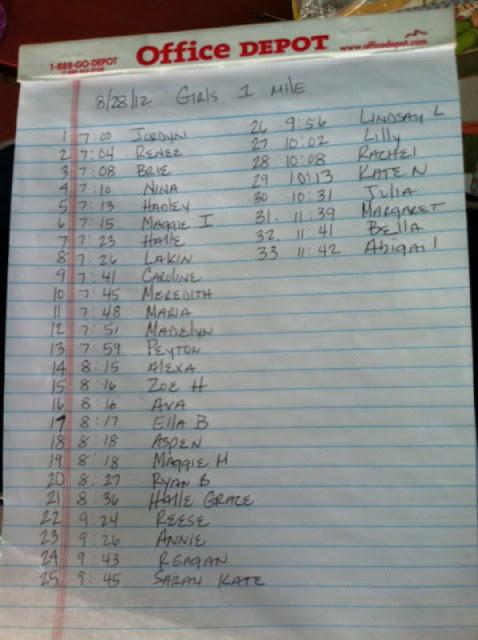 1-888-GO-DEPOT Office DEPOT www.officedepot.com
8/28/12 Girls 1 Mile
1 7:00 Jordyn
2 7:04 Renee
3 7:08 Brie
4 7:10 Nina
5 7:13 Hadley
6 7:15 Maggie I
7 7:23 Halle
8 7:26 Lakin
9 7:41 Caroline
10 7:45 Meredith
11 7:48 Maria
12 7:51 Madelyn
13 7:59 Peyton
14 8:15 Alexa
15 8:16 Zoe H
16 8:16 Ava
17 8:17 Ella B
18 8:18 Aspen
19 8:18 Maggie H
20 8:27 Ryan B
21 8:36 Halle Grace
22 9:24 Reese
23 9:26 Annie
24 9:43 Reagan
25 9:45 Sarah Kate
26 9:56 Lindsay L
27 10:02 Lilly
28 10:08 Rachel
29 10:13 Kate N
30 10:31 Julia
31. 11:39 Margaret
32. 11:41 Bella
33 11:42 Abigail